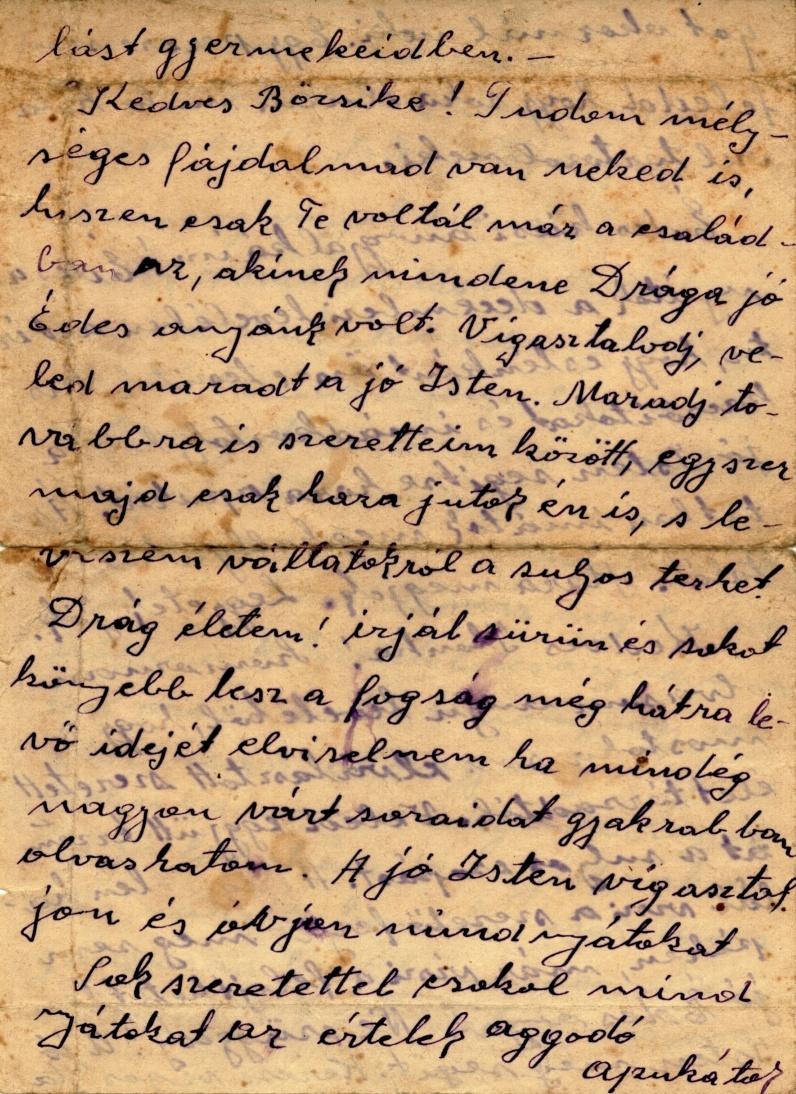 lást gyermekeidben. –
Kedves Bözsike! Tudom mély-
séges fájdalmad van neked is,
hiszen csak Te voltál már a család-
ban az, akinek mindene Drága jó
Édes anyánk volt. Vigasztalodj, ve-
led maradt a jó Isten. Maradj to-
vábbra is szeretteim között, egyszer
majd csak haza jutok én is, s le-
viszem vállatokról a sulyos terhet
Drág életem! irjál sürün és sokat
könyebb lesz a fogság még hátra le-
vő idejét elviselnem ha mindég
nagyon várt soraidat gyakrabban
olvashatom. A jó Isten vigasztal
jon és óvjon mindnyájtokat
Sok szeretettel csokol mind
nyájtokat az értetek aggodó
Apukátok